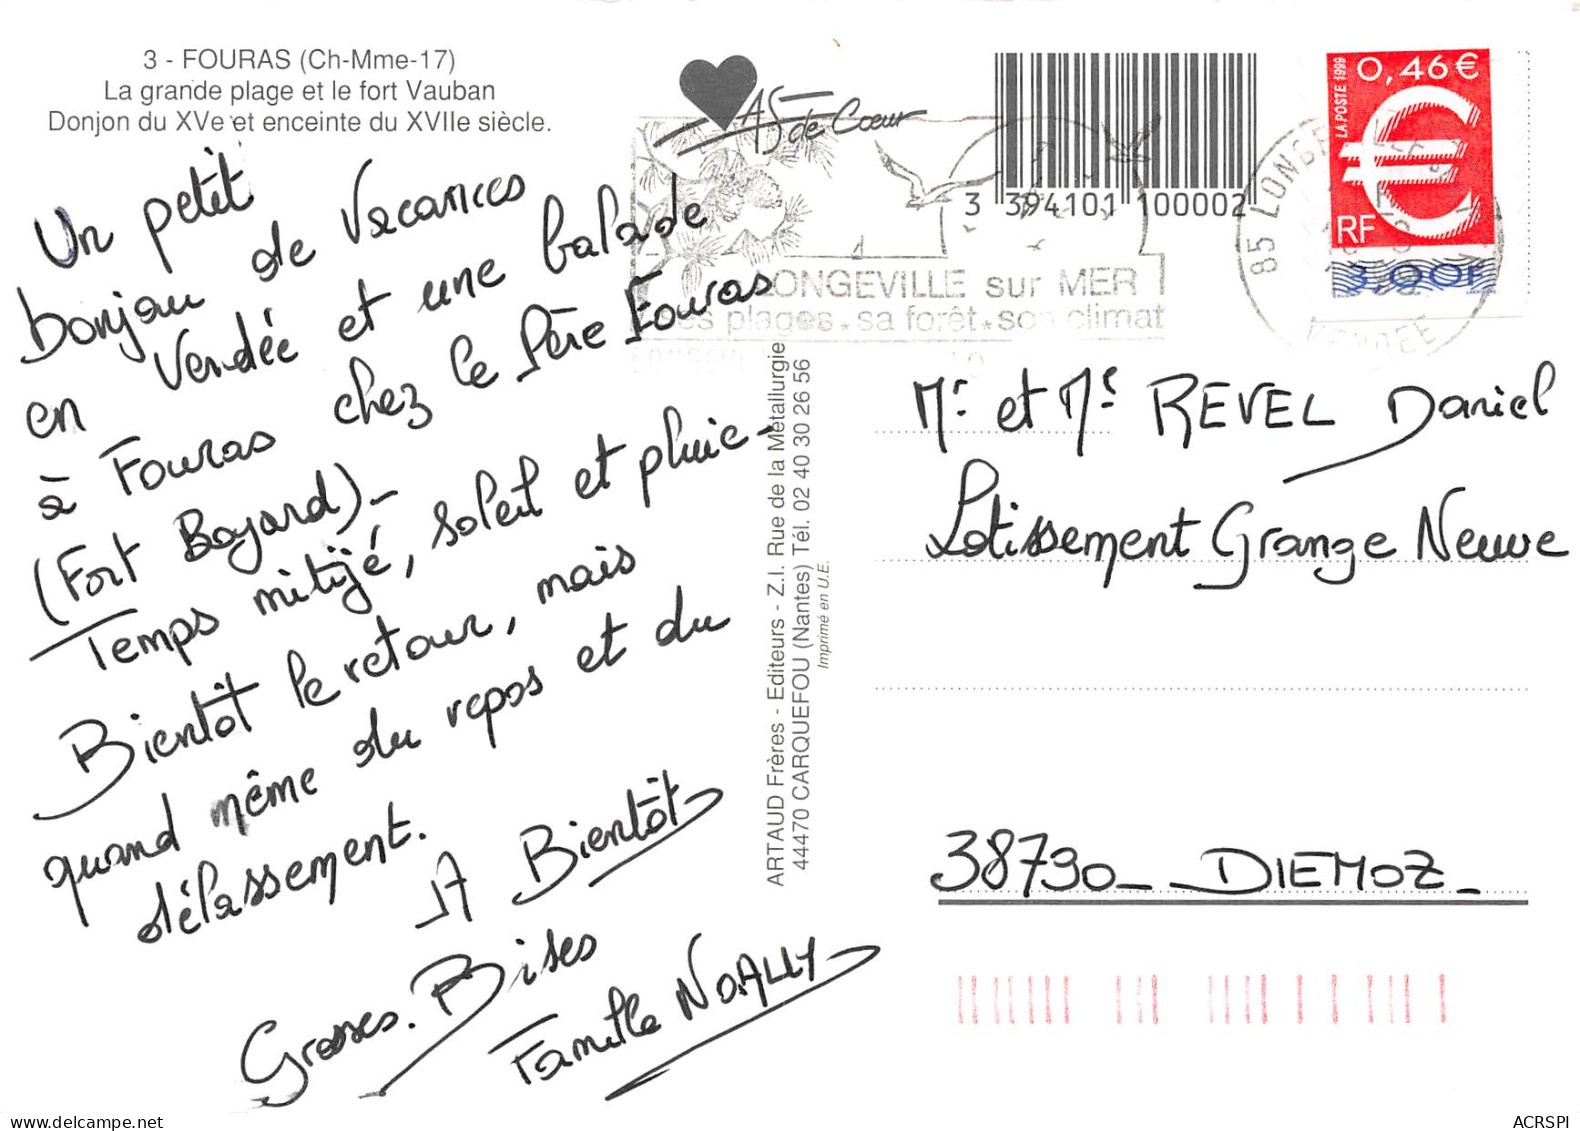 3 - FOURAS (Ch-Mme-17)
La grande plage et le fort Vauban
Donjon du XVe et enceinte du XVIIe siècle.
Un petit
bonjour de Vacances
en Vendée et une balade
à Fouras chez le Père Fouras
(Fort Boyard)-
Temps mitigé, soleil et pluie-
Bientôt le retour, mais
quand même du repos et du
délassement.
A Bientôt
Grosses Bises
Famille NOALLY
AS de Cœur
3 394101 100002
LONGEVILLE sur MER
ses plages * sa forêt * son climat
85 LONGE
VENDEE
0,46 €
LA POSTE 1999
RF
3,00F
ARTAUD Frères - Editeurs - Z.I. Rue de la Métallurgie
44470 CARQUEFOU (Nantes) Tél. 02 40 30 26 56
Imprimé en U.E.
Mr et Me REVEL Daniel
Lotissement Grange Neuve
38790 - DIEMOZ -
ACRSPI